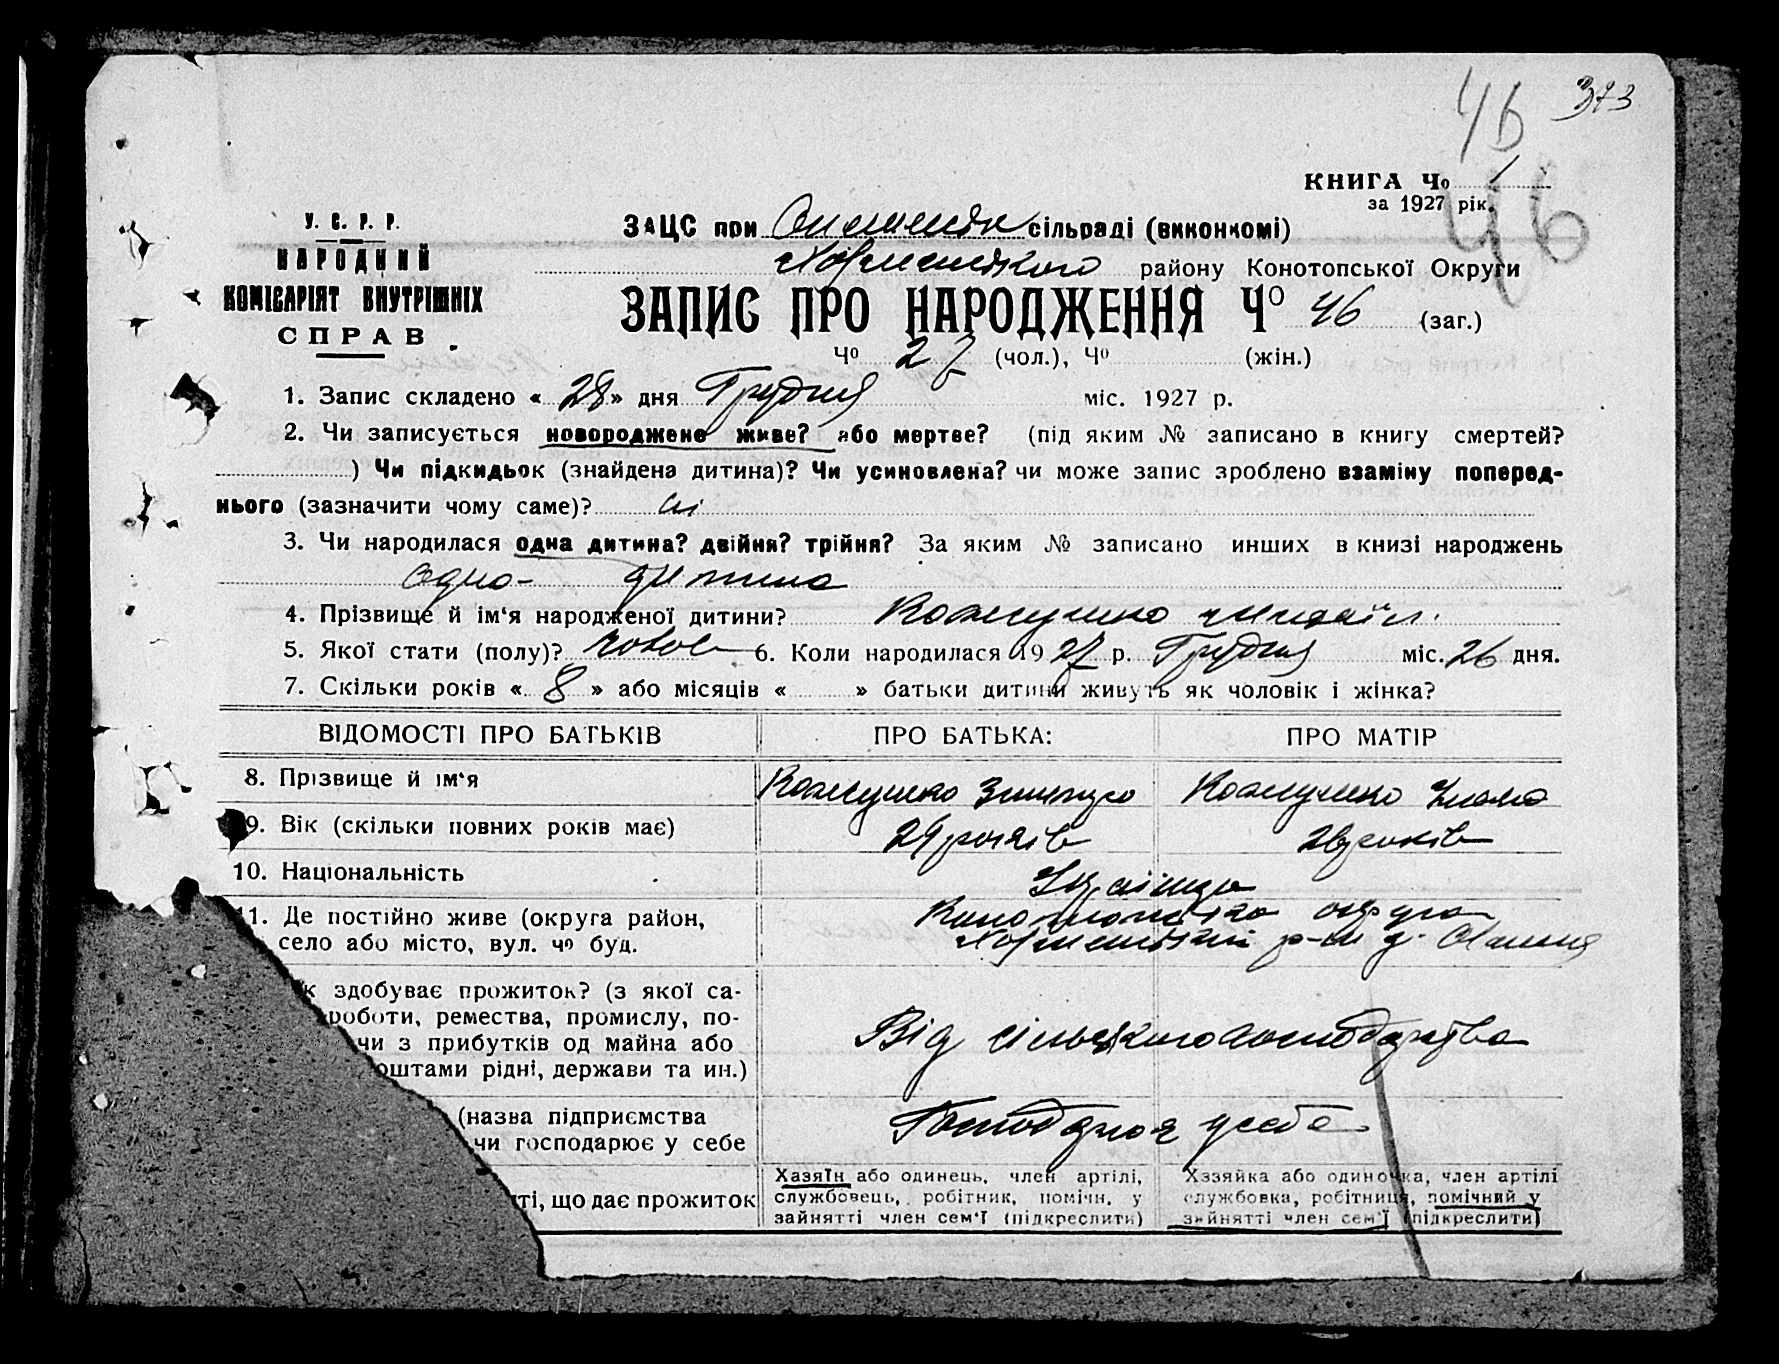 46 373
КНИГА Чо 1
за 1927 рік.
46
У. С. Р. Р.
НАРОДНИЙ
КОМІСАРІЯТ ВНУТРІШНІХ
СПРАВ
ЗАЦС при сільраді (виконкомі)
району Конотопської Округи
ЗАПИС ПРО НАРОДЖЕННЯ Чо 46 (заг.)
Чо 27 (чол.), Чо (жін.)
1. Запис складено « 28 » дня Грудня міс. 1927 р.
2. Чи записується новороджене живе? або мертве? (під яким № записано в книгу смертей?
) Чи підкидьок (знайдена дитина)? Чи усиновлена? чи може запис зроблено взаміну поперед-
нього (зазначити чому саме)? ні
3. Чи народилася одна дитина? двійня? трійня? За яким № записано инших в книзі народжень
одна- дитина
4. Прізвище й ім‘я народженої дитини? Кожушко Михаіл.
5. Якої стати (полу)? чолов 6. Коли народилася 1927 р. Грудня міс. 26 дня.
7. Скільки років « 8 » або місяців « » батьки дитини живуть як чоловік і жінка?
ВІДОМОСТІ ПРО БАТЬКІВ ПРО БАТЬКА: ПРО МАТІР
8. Прізвище й ім‘я Кожушко Кожушко
9. Вік (скільки повних років має) років років
10. Національність Українці
11. Де постійно живе (округа район, Конотопська округа
село або місто, вул. чо буд. р-н
к здобуває прожиток? (з якої са-
роботи, ремества, промислу, по-
чи з прибутків од майна або Від сільського господарства
оштами рідні, держави та ин.)
(назва підприємства Господарюя у себе
чи господарює у себе
ті, що дає прожиток
Хазяїн або одинець, член артілі,
службовець, робітник, помічн. у
зайнятті член сем‘ї (підкреслити)
Хззяйка або одиночка, член артілі
службовка, робітниця, помічний у
зайнятті член сем‘ї (підкреслити)